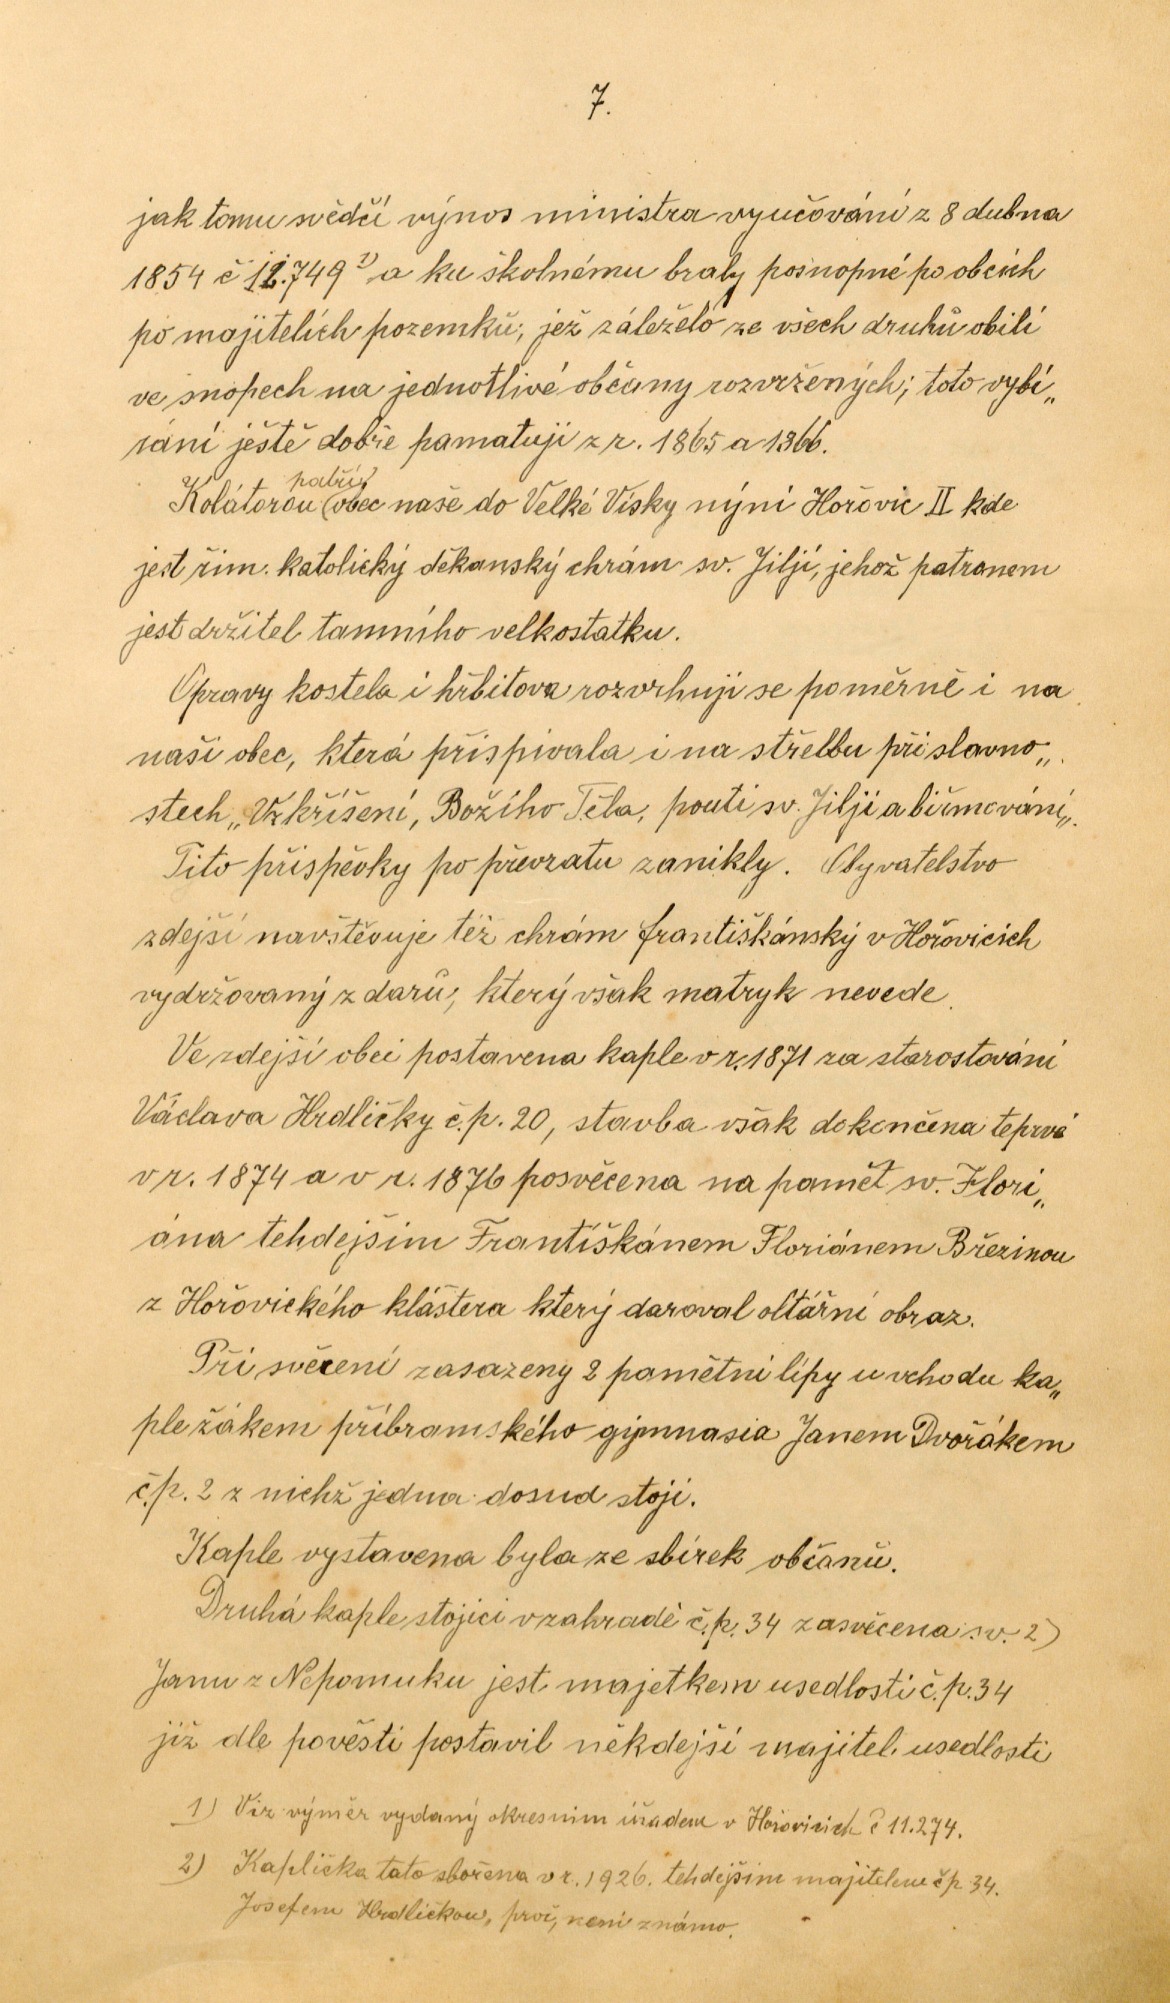 7.
jak tomu svědčí výnos ministra vyučování z 8 dubna
1854 č 12.749 1) a ku školnému braly posnopné po obcích
po majitelích pozemků, jež záleželo ze všech druhů obilí
ve snopech na jednotlivé občany rozvržených; toto vybí„
rání ještě dobře pamatuji z r. 1865 a 1866.
patří
Kolátorou (obec naše do Velké Vísky nýní Hořovic II kde
jest řím. katolický děkanský chrám sv. Jiljí, jehož patronem
jest držitel tamního velkostatku.
Opravy kostela i hřbitova rozvrhují se poměrně i na
naši obec, která přispívala i na střelbu při slavno„
stech „Vzkříšení, Božího Těla, pouti sv. Jiljí a biřmování„.
Tito příspěvky po převratu zanikly. Obyvatelstvo
zdejší navštěvuje též chrám františkánský v Hořovicích
vydržovaný z darů, který však matryk nevede.
Ve zdejší obci postavena kaple v r. 1871 za starostování
Václava Hrdličky č.p. 20, stavba však dokončena teprvé
v r. 1874 a v r. 1876 posvěcena na pamět sv. Flori„
ána tehdejším Františkánem Floriánem Březinou
z Hořovického kláštera který daroval oltářní obraz.
Při svěcení zasazeny 2 pamětní lípy u vchodu ka„
ple žákem příbramského gymnasia Janem Dvořákem
č.p. 2 z nichž jedna dosud stojí.
Kaple vystavena byla ze sbírek občanů.
Druhá kaple stojící v zahradě č.p. 34 zasvěcena sv. 2)
Janu z Nepomuku jest majetkem usedlosti č.p. 34
již dle pověsti postavil někdejší majitel usedlosti
1) Viz výměr vydaný okresním úřadem v Hořovicích č 11.274.
2) Kaplička tato sbořena v r. 1926. tehdejším majitelem čp 34.
Josefem Hrdličkou, proč, není známo.